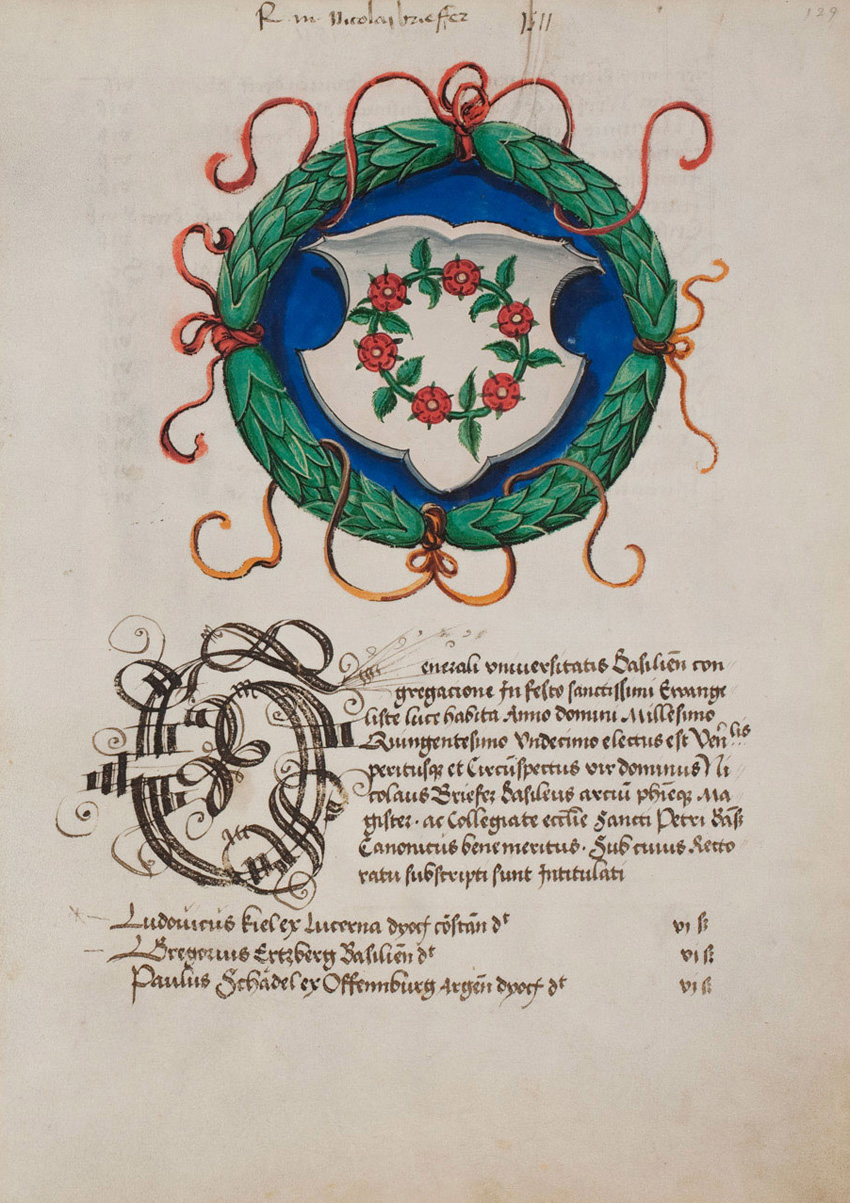 R. m. Nicolaj briefer 1511
129
Generali vniuersitatis Basilien̄ con
gregacione In festo sanctissimi Ewange
liste luce habita Anno domini Millesimo
Quingentesimo Vndecimo electus est Ven̄lis
peritusqȝ et Circūspectus vir dominus Ni
colaus Briefer Basileus arciū ph̄ieqȝ Ma
gister · ac Collegiate eccl̄ie Sancti Petri Bas̄
Canonicus benemeritus · Sub cuius Recto
ratu subscripti sunt Intitulati
Ludouicus kiel ex Lucerna dyoc̄ cōstan̄ dt vi ß
Gregorius Ertzberg Basilien̄ dt vi ß
Paulus Schädel ex Offennburg Argen̄ dyoc̄ dt vi ß